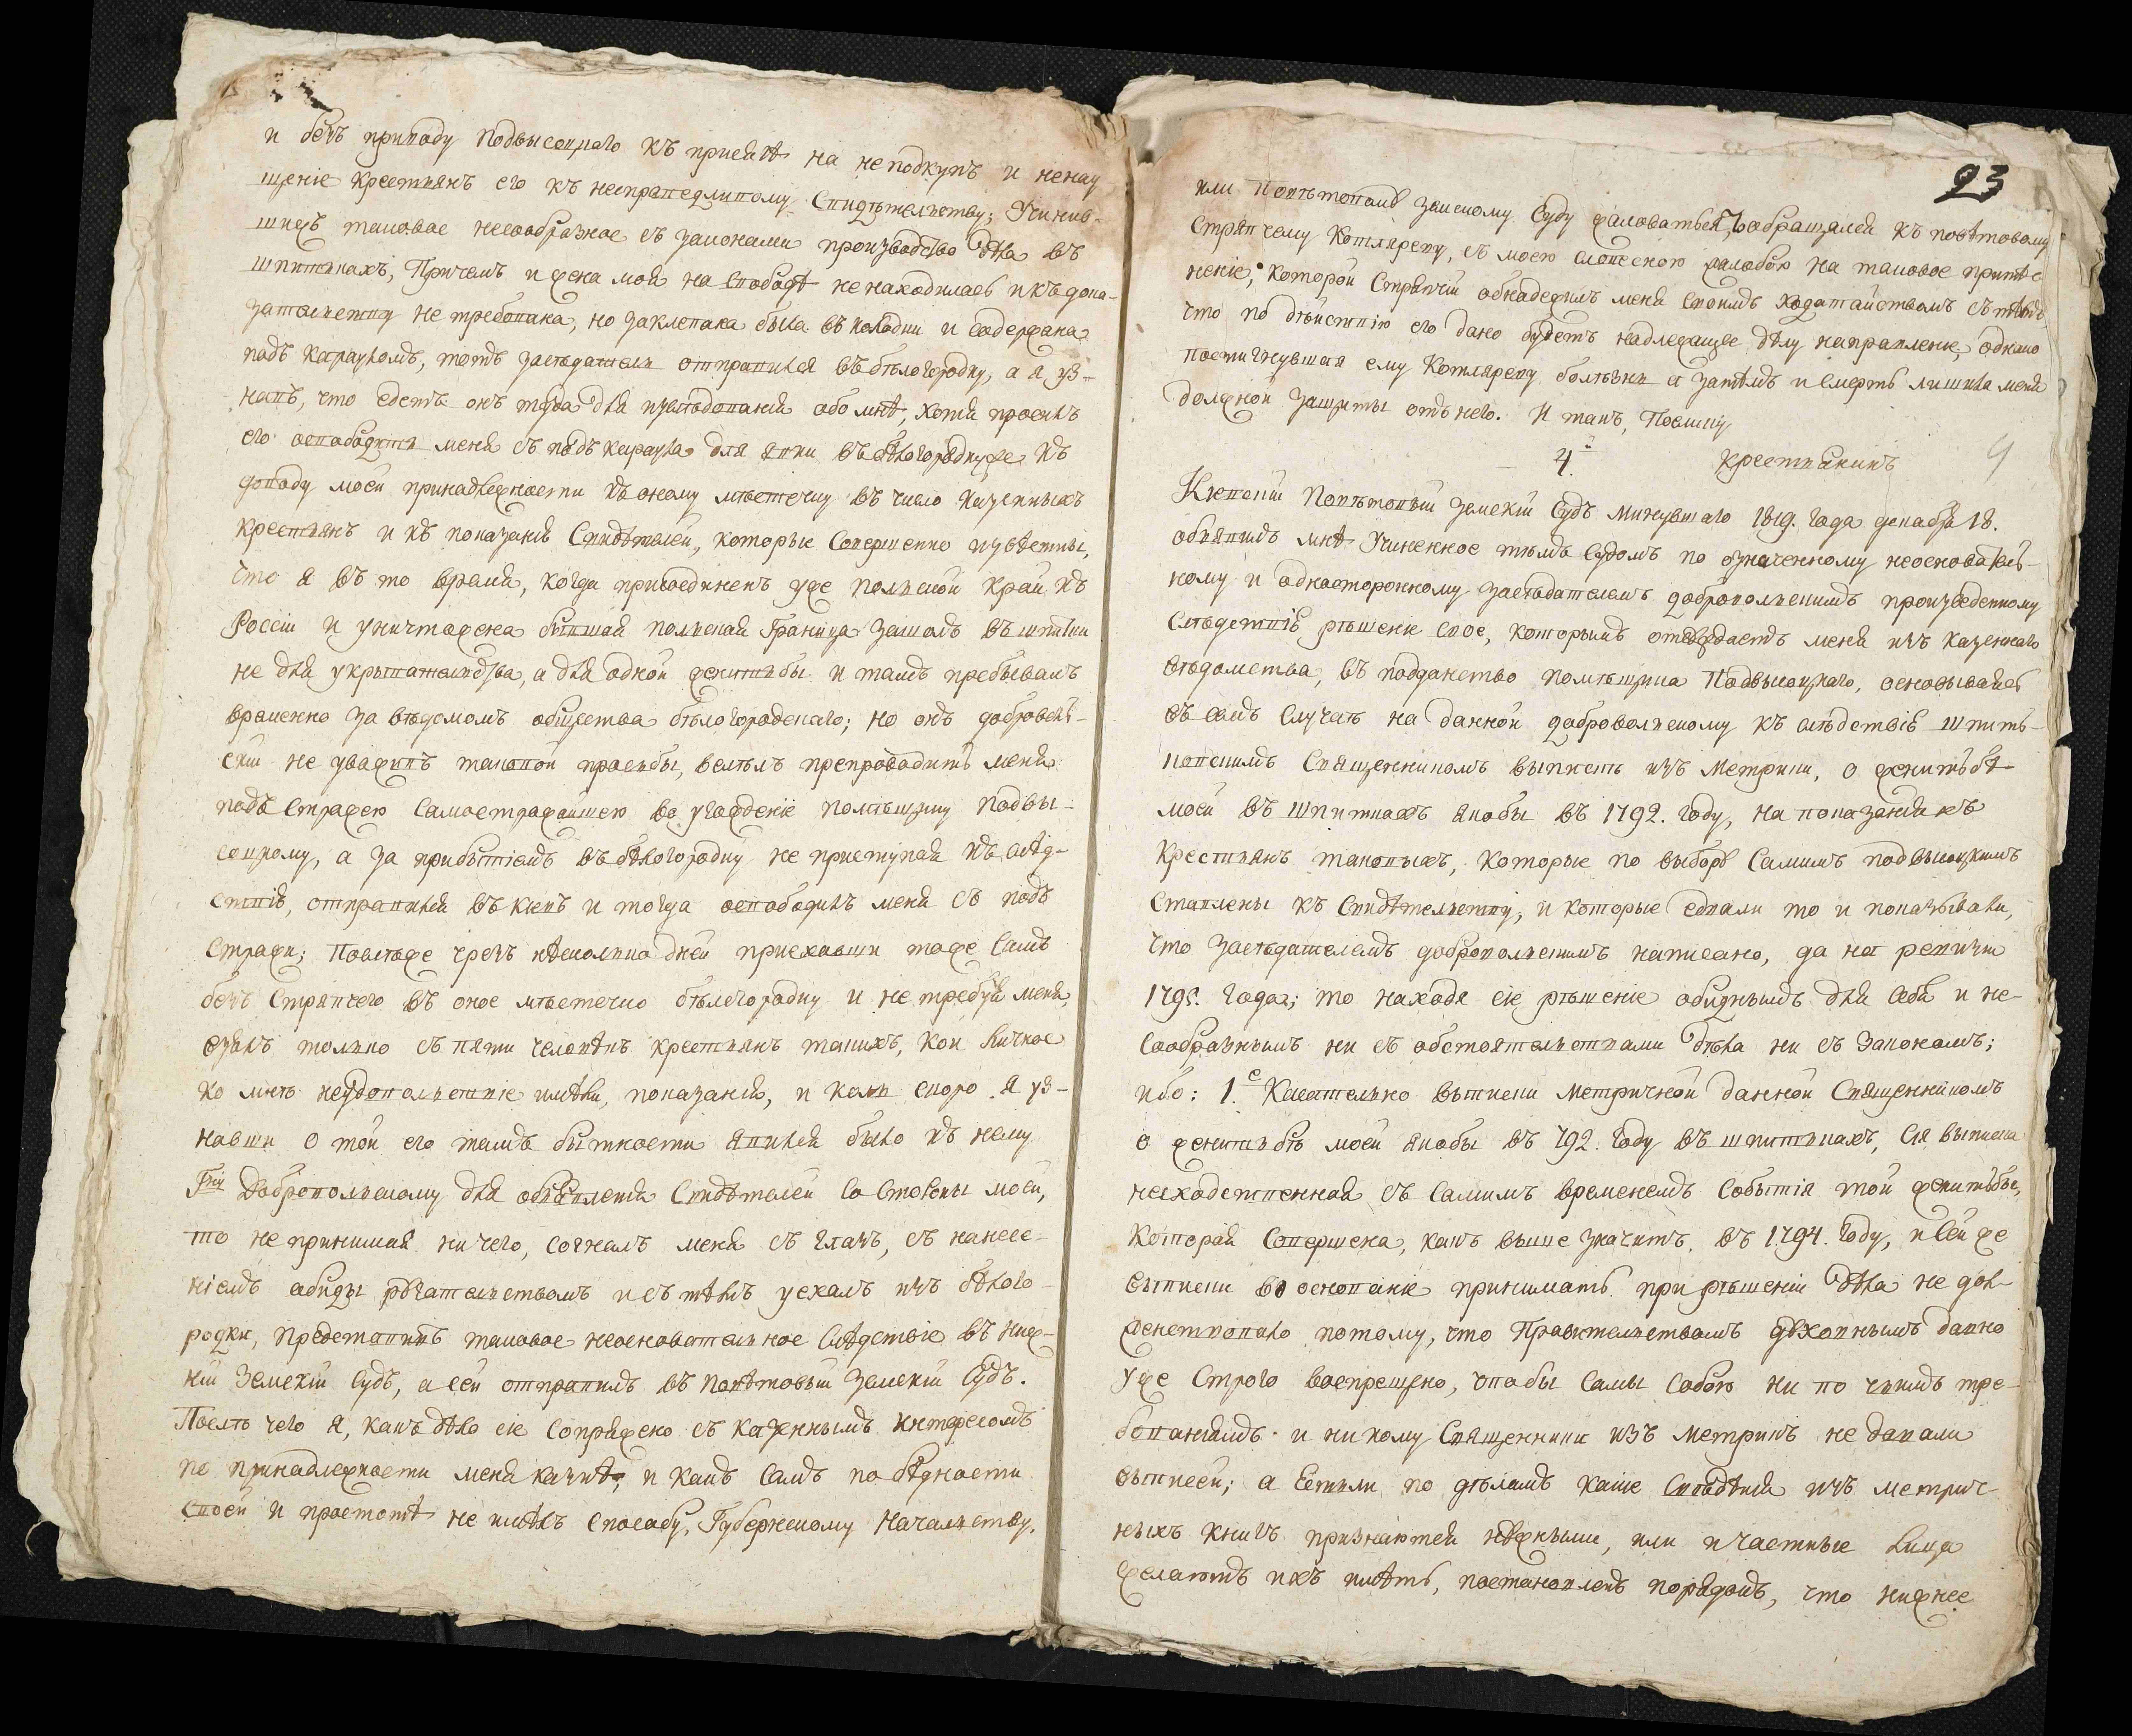 и безъ приводу Подвысоцкаго къ присягѣ на неподкупъ и ненау
щеніе крестьянъ его къ несправедливому Свидѣтельству; Учинив-
шихъ таковое несообразное съ законами производство дѣла въ
шпитькахъ, Причемъ и жена моя на свободѣ ненаходилась и къ дока-
зательству не требована, но заклепана была въ колодки и содержана
подъ карауломъ, тотъ заседатель отправился въ бѣлогородку, а я уз-
навъ, что едетъ онъ туда для изслѣдованія обо мнѣ, хотя просилъ
его освободить меня съ подъ караула для явки въ бѣлогородку же къ
доводу моей принадлежности къ оному мѣстечку въ число казенныхъ
крестьянъ и къ показанію Свидѣтелей, которые Совершенно извѣстны,
что я въ то время, когда присоединенъ уже польской край къ
Россіи и уничтожена бывшая польская Граница зашолъ въ шпитьки
не для укрывательства, а для одной женитьбы и тамъ пребывалъ
временно за вѣдомомъ общества бѣлогородскаго; но онъ доброволь-
скій не уваживъ таковой просьбы, велѣлъ препроводить меня
подъ Стражею Самостражайшею во угожденіе помѣщику подвы-
соцкому, а за прибытіемъ въ бѣлогородку не приступая къ слѣд-
ствію, отправился въ кіевъ и тогда освободилъ меня съ подъ
Стражи; Послѣже чрезъ нѣсколько дней приехавши тоже Самъ
безъ Стряпчего въ оное мѣстечко бѣлогородку и не требуя меня,
взялъ только съ пяти человѣкъ крестьянъ такихъ, кои личное
ко мнѣ неудовольствіе имѣли, показаній, и коль скоро я уз-
навши о той его тамъ бытности явился было къ нему
Гну Добровольскому для объявленія Свидѣтелей со Стороны моей,
то не принимая ничего, согналъ меня съ глазъ, съ нанесе-
ніемъ обиды ругательствомъ и съ тѣмъ уехалъ изъ бѣлого-
родки, представивъ таковое неосновательное Слѣдствіе въ ниж-
ній Земскій Судъ, а сей отправилъ въ Повѣтовый Земскій Судъ.
Послѣ чего я, какъ дѣло сіе Сопряжено съ казеннымъ интересомъ
по принадлежности меня казнѣ, и какъ Самъ по бѣдности
своей и простотѣ не имѣлъ способу, Губернскому Начальству,
23
или Повѣтовому земскому Суду жаловаться, обращался къ повѣтовому
Стряпчему Котляреву, съ моею словесною жалобою на таковое притѣс
неніе, которой Стряпчій обнадежилъ меня Своимъ ходатайствомъ съ тѣмъ
что по дѣйствію его дано будетъ надлежащее дѣлу направленіе, однако
постигнувшая ему Котляреву болѣзнь а затѣмъ и Смерть лишила меня
должной защиты отъ него. И такъ, Поелику
4.
крестьянинъ
Кіевскій Повѣтовый земскій Судъ минувшаго 1819. Года декабря 18.
объявилъ мнѣ Учиненное тѣмъ Судомъ по означенному неоснователь-
ному и одностороннему заседателемъ добровольскимъ произведенному
Слѣдствію рѣшеніе свое, которымъ отсуждаетъ меня изъ казеннаго
вѣдомства, въ подданство помѣщика Подвысоцкаго, основываясь
въ семъ Случаѣ на данной добровольскому къ слѣдствію шпить-
ковскимъ Священникомъ выпискѣ изъ Метрики, о женитьбѣ
моей въ шпиткахъ якобы въ 1792. году, на показаніяхъ
Крестьянъ таковыхъ, которые по выбору Самимъ подвысоцкимъ
Ставлены къ Свидѣтельству, и которые едвали то и показывали,
что заседателемъ добровольскимъ написано, да на ревизіи
1795. Года; то находя сіе рѣшеніе обиднымъ для Себя и не-
Сообразнымъ ни съ обстоятельствами дѣла ни съ Закономъ;
ибо: 1.е Касательно выписи Метричной данной Священникомъ
о женитьбѣ моей якобы въ 792. Году въ шпитькахъ, Ся выписка
несходственная съ Самимъ временемъ Событія той женитьбы,
которая Совершена, какъ выше значитъ, въ 1794. Году, и Сей же
выписи во основаніе принимать при рѣшеніи дѣла не дол-
женствовало потому, что Правительствомъ духовнымъ давно
уже Строго воспрещено, чтобы Самы Собою ни по чьимъ тре-
бованіямъ и никому Священники изъ Метрикъ не давали
выписей; а Естьли по дѣламъ какіе Свѣдѣнія изъ метрич-
ныхъ книгъ признаются нужными, или и частные лица
желаютъ ихъ имѣть, постановленъ порядокъ, что нижнее